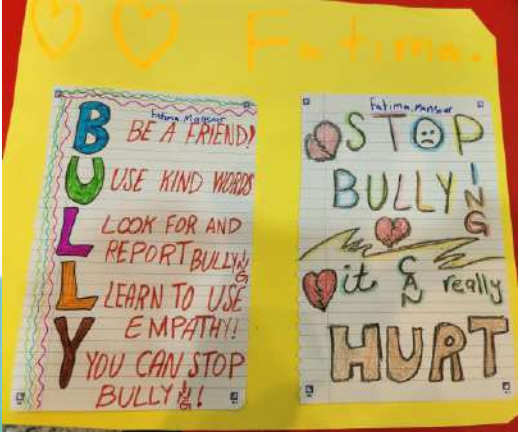 Fatima.
Fatima Mansour
B BE A FRIEND!
U USE KIND WORDS
L LOOK FOR AND
REPORT BULLYING
L LEARN TO USE
EMPATHY!
Y YOU CAN STOP
BULLYING!
Fatima Mansour
STOP
BULLYING
it CAN really
HURT